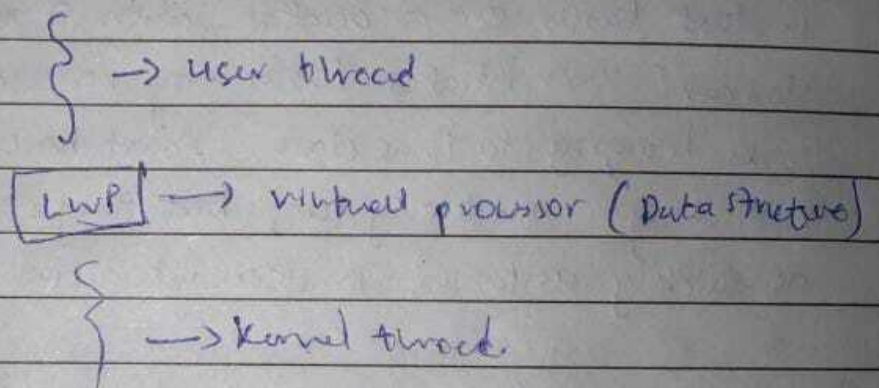 → user thread
LWP → virtual processor (Data structure)
→ Kernel thread.